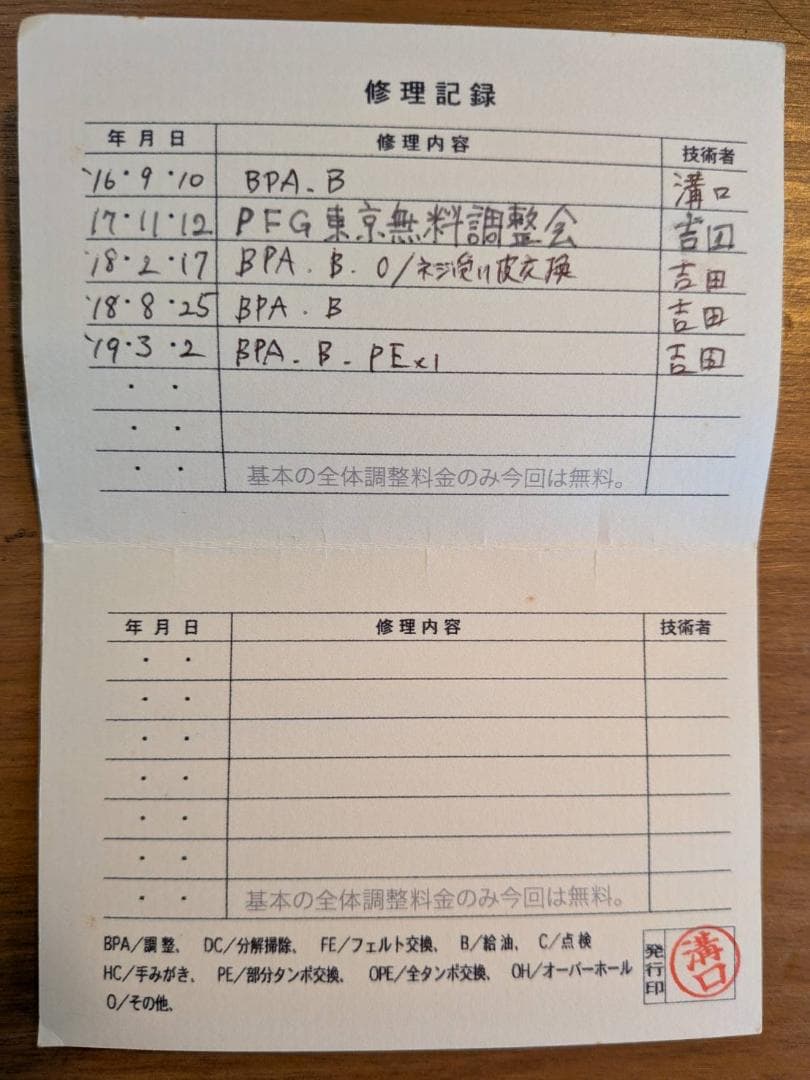 修理記録
年月日 修理内容 技術者
'16・9・10 BPA. B 溝口
17・11・12 PFG東京無料調整会 吉田
'18・2・17 BPA. B. O/ネジ受け皮交換 吉田
'18・8・25 BPA. B 吉田
'19・3・2 BPA. B. PEx1 吉田
・ ・
・ ・
・ ・ 基本の全体調整料金のみ今回は無料。
年月日 修理内容 技術者
・ ・
・ ・
・ ・
・ ・
・ ・
・ ・
・ ・ 基本の全体調整料金のみ今回は無料。
BPA/調整、 DC/分解掃除、 FE/フェルト交換、 B/給油、 C/点検
HC/手みがき、 PE/部分タンポ交換、 OPE/全タンポ交換、 OH/オーバーホール
O/その他、
発行印 溝口